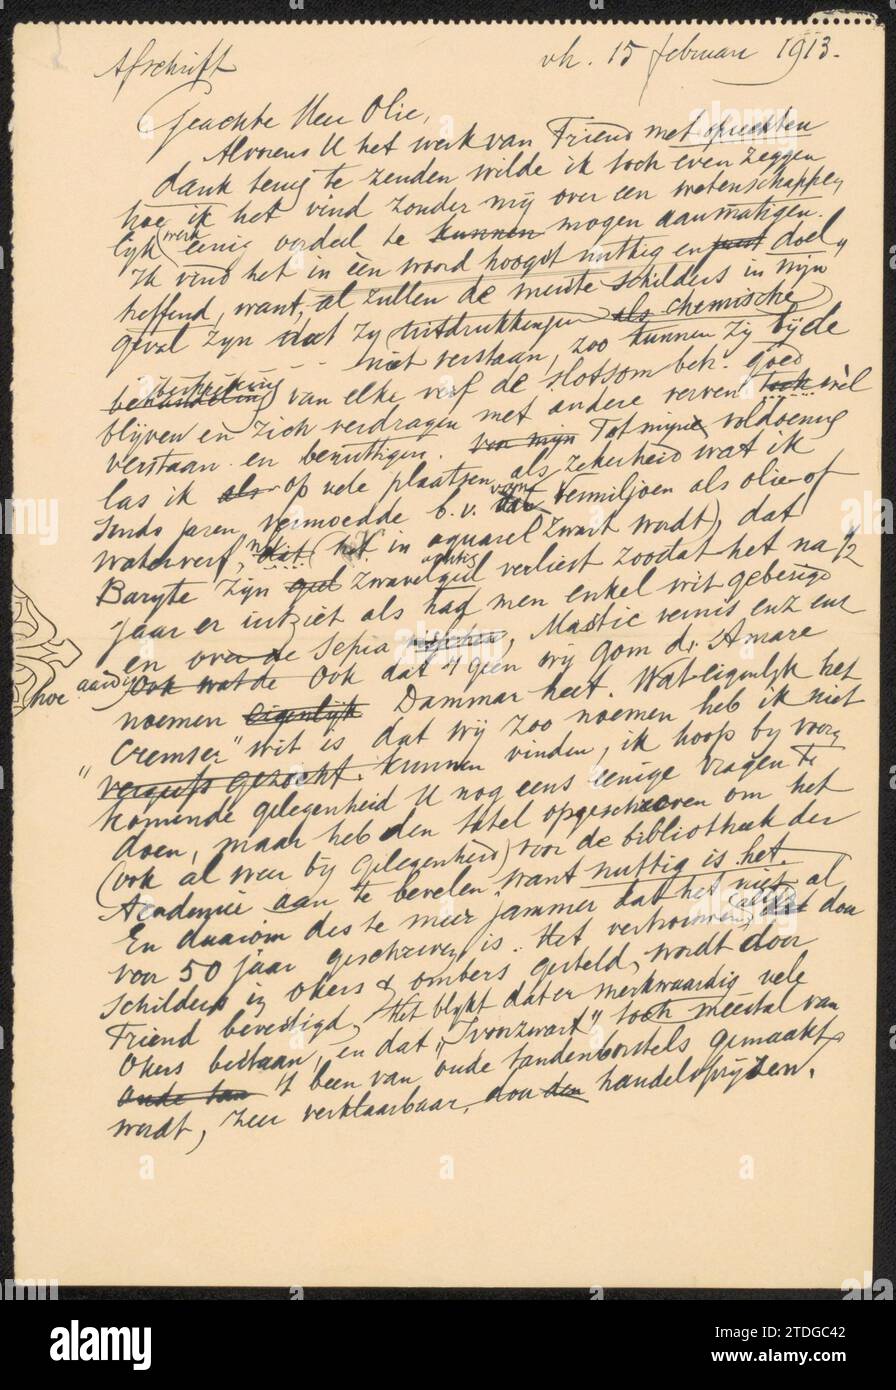 Afschrift vh. 15 februari 1913.
Geachte Heer Olie,
Alvorens U het werk van Friend met oprechten
dank terug te zenden wilde ik toch even zeggen
hoe ik het vind zonder mij over een wetenschappe„
lijk werk eenig oordeel te kunnen mogen aanmatigen.
Ik vind het in één woord hoogst nuttig en juist doel„
treffend, want, al zullen de meeste schilders in mijn
geval zyn dat zy uitdrukkingen als chemische
niet verstaan, zoo kunnen zij bij de
behandeling beschrijving van elke verf de slotsom betr. goed
blijven en zich verdragen met andere verven toch wèl
verstaan en benuttigen. Van mijn Tot mijne voldoening
las ik als op vele plaatsen als zekerheid wat ik
sinds jaren vermoedde b.v. dat van Vermiljoen als olie- of
waterverf, dat (het in aquarel zwart wordt), dat
Baryte zijn geel zwavel geel verliest zoodat het na 1/2
jaar er uitziet als had men enkel wit gebezigd
en over de Sepia, Mastic vernis enz enz
hoe aardig ook wat de ook dat "geen wij gom d. Amare
noemen eigenlijk Dammar heet. Wat eigenlijk het
"Cremser" wit is dat wij zoo noemen heb ik niet
vergeefs gezocht. kunnen vinden, ik hoop by voor„
komende gelegenheid U nog eens eenige vragen te
doen, maar heb den titel opgeschreven om het
(ook al weer bij gelegenheid) voor de bibliotheek der
Academie aan te bevelen want nuttig is het.
En daarom des te meer jammer dat het niet al
voor 50 jaar geschreven is. Het vertrouwen dat door
Schilders in okers & ombers gesteld, wordt door
Friend bevestigd, Het blijkt dat er merkwaardig vele
Okers bestaan, en dat "Ivoorzwart" toch meestal van
oude tan 't been van oude tandenborstels gemaakt
wordt, zeer verklaarbaar, door den handelsprijzen.
alamy
Image ID: 2TDGC42
www.alamy.com